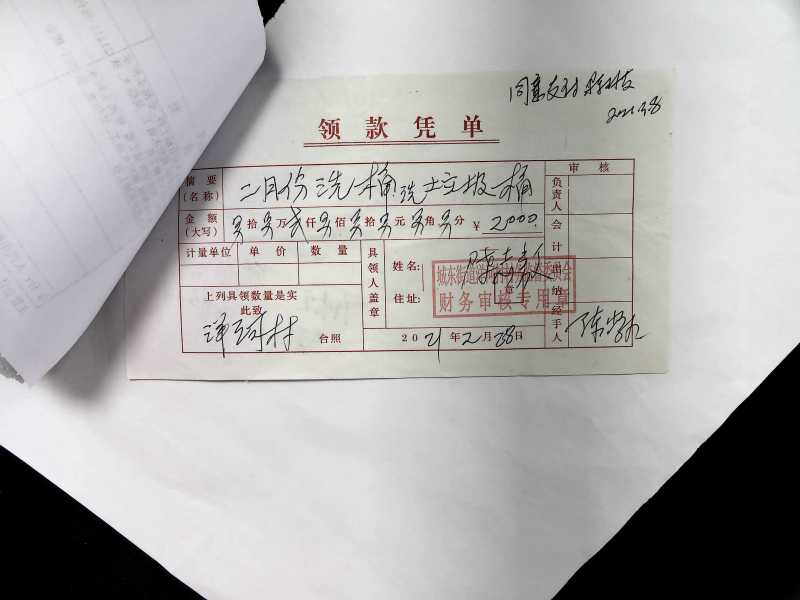 同意支付
2021.3.8
领款凭单
摘要(名称) 二月份洗桶洗垃圾桶
审核
负责人
金额(大写) 另拾另万贰仟另佰另拾另元另角另分 ¥2000.
会计
计量单位 单价 数量
具领人盖章
姓名:
住址:
城东街道
财务审核专用章
出纳
上列具领数量是实
此致
村 台照
2021年2月28日
经手人 陈